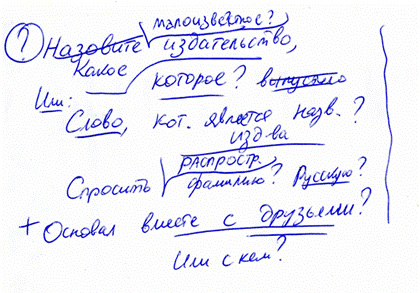 малоизвестное?
? Назовите издательство,
Какое
которое? выпускало
Или:
Слово, кот. является назв.?
изд-ва
распростр.
Спросить фамилию? Русскую?
+ Основал вместе с друзьями?
Или с кем?